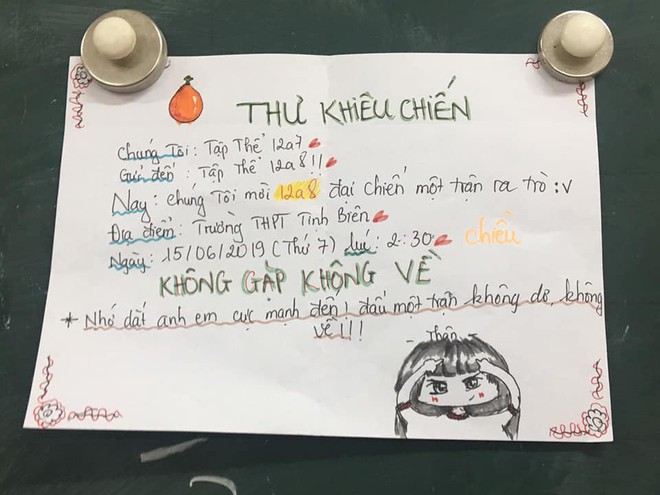 THƯ KHIÊU CHIẾN
Chúng Tôi: Tập Thể 12a7
Gửi đến: Tập Thể 12a8!!
Nay: chúng Tôi mời 12a8 đại chiến một trận ra trò :v
Địa điểm: Trường THPT Tịnh Biên
Ngày: 15/06/2019 (Thứ 7) lú: 2:30 chiều
KHÔNG GẶP KHÔNG VỀ
* Nhớ dắt anh em cực mạnh đến, đấu một trận không dơ, không
về!!!
- Thân -